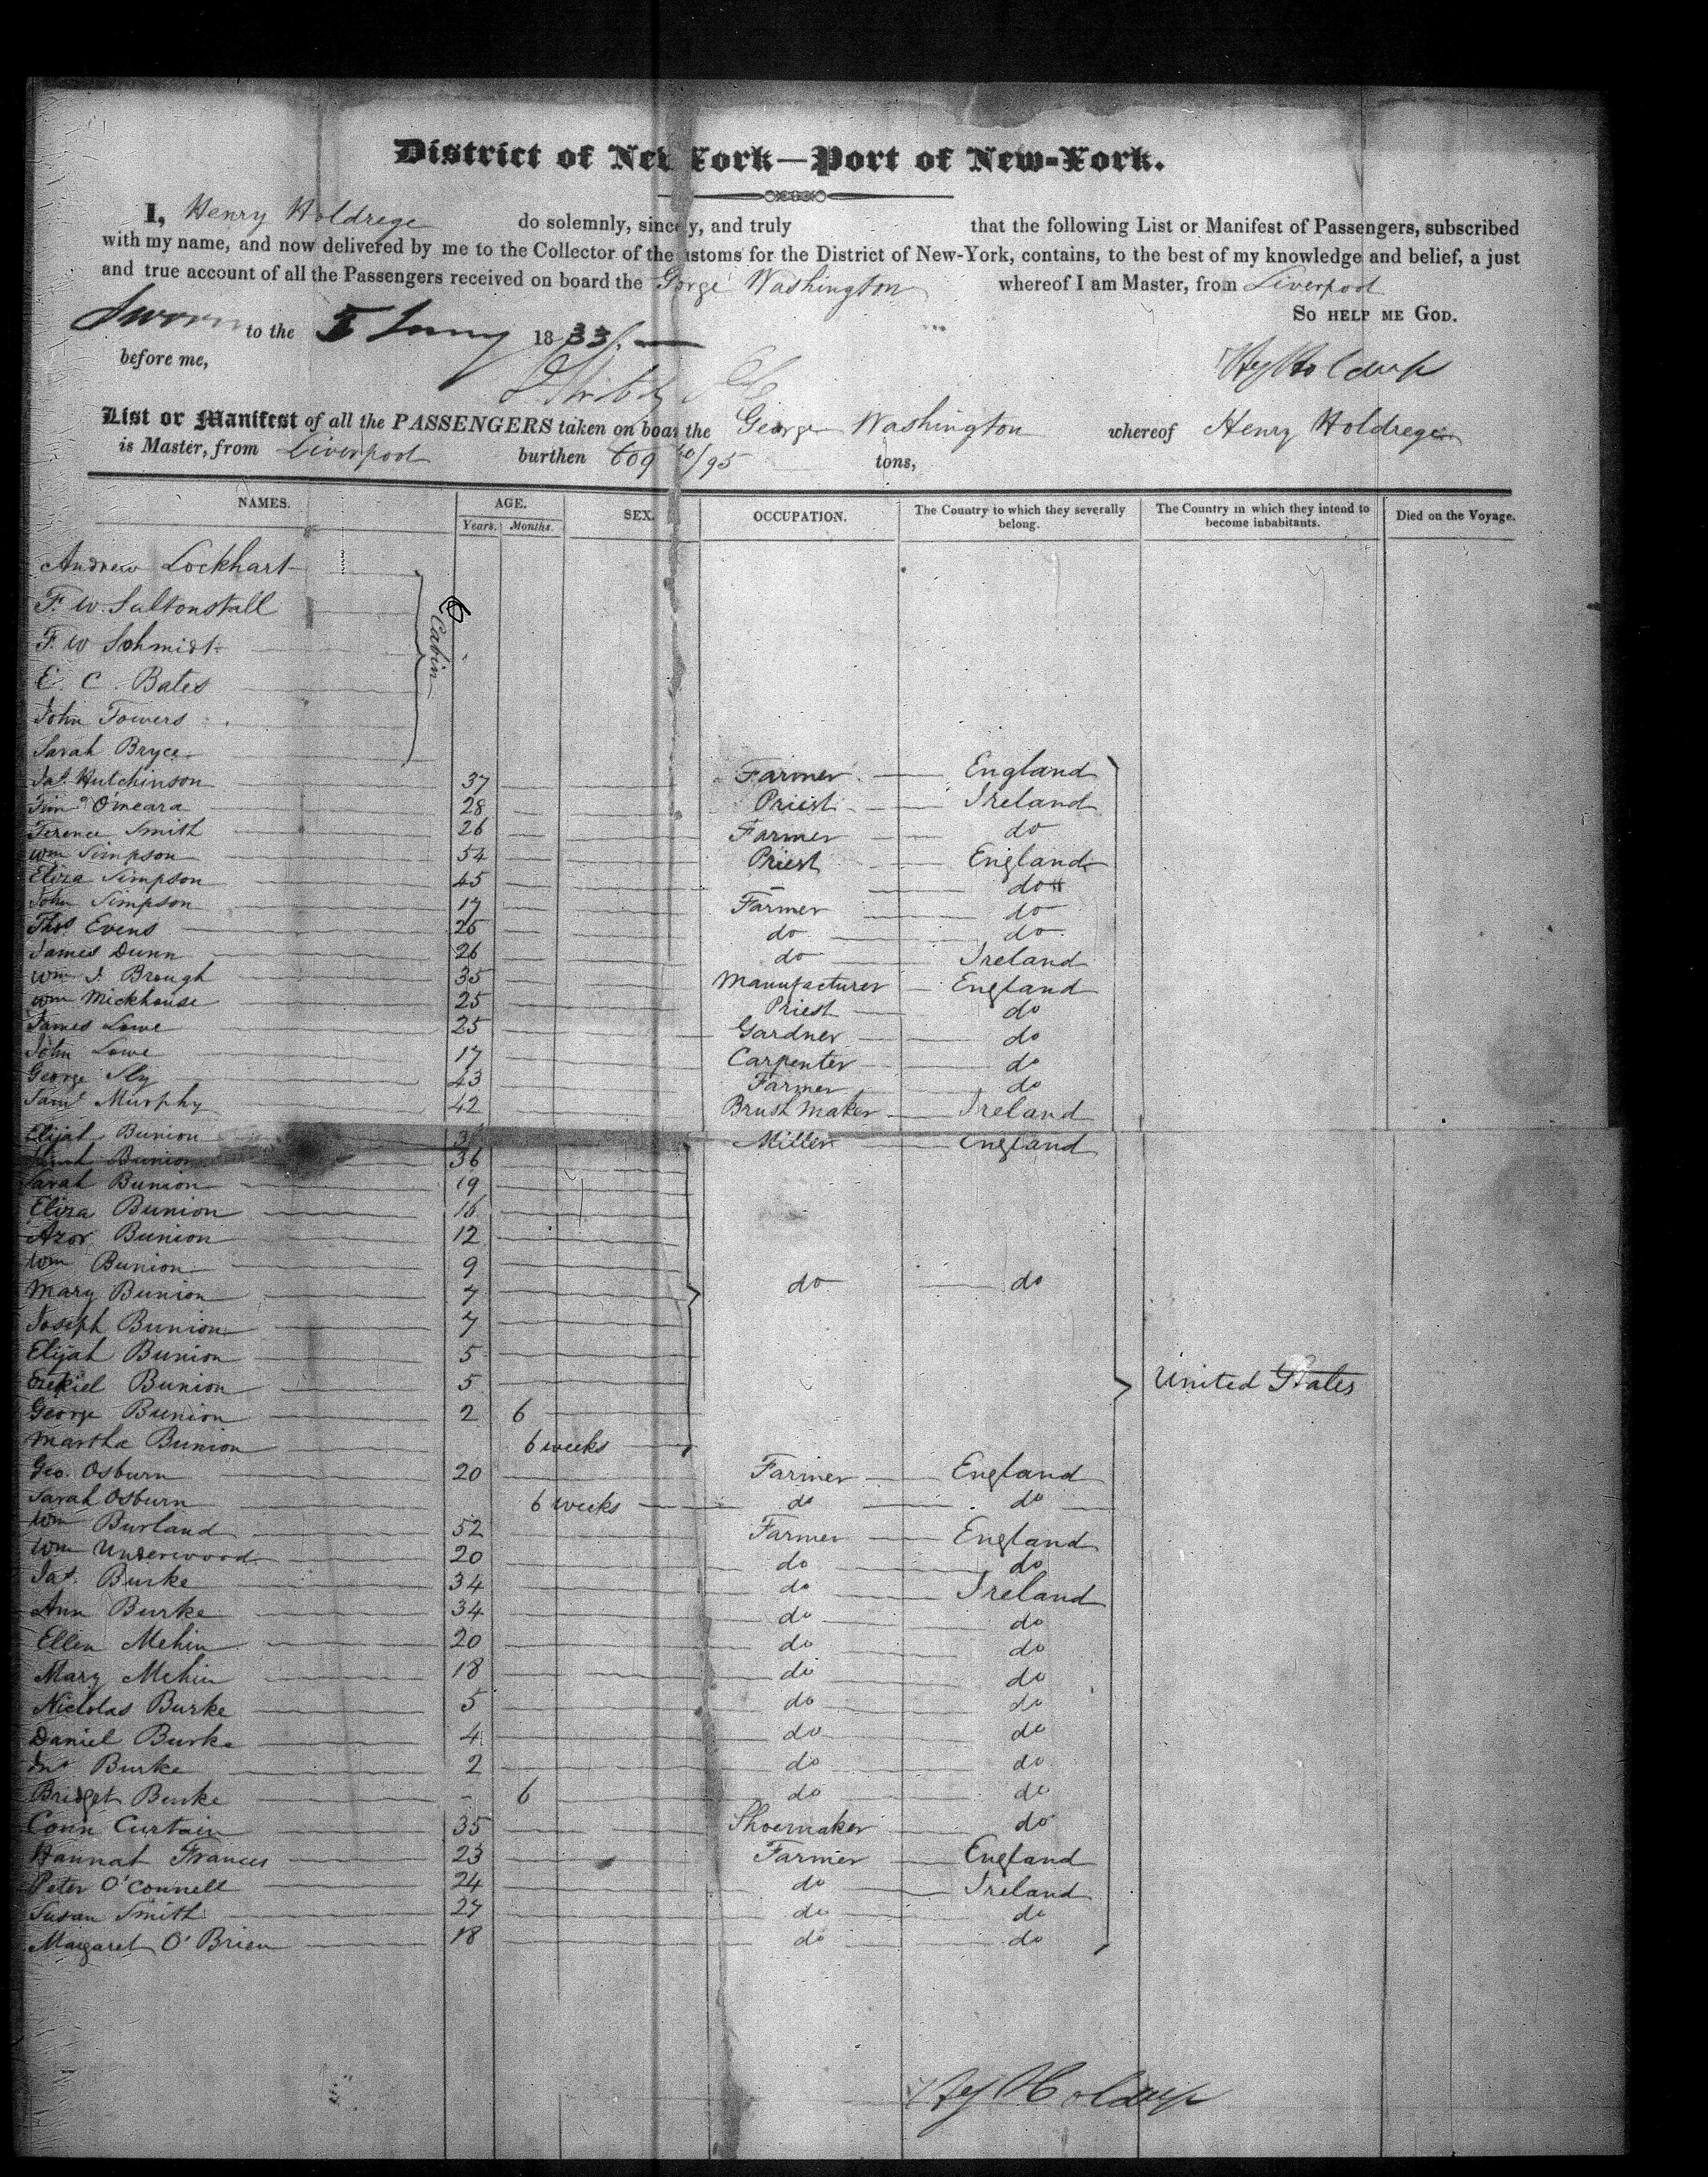 District of New York—Port of New-York.
I, Henry Holdrege do solemnly, sincely, and truly that the following List or Manifest of Passengers, subscribed
with my name, and now delivered by me to the Collector of the ustoms for the District of New-York, contains, to the best of my knowledge and belief, a just
and true account of all the Passengers received on board the Gorge Washington whereof I am Master, from Liverpool
So help me God.
Sworn to the 5 1833
before me,
List or Manifest of all the PASSENGERS taken on boar the George Washington whereof Henry Holdrege
is Master, from Liverpool burthen 609 /95 tons,
NAMES. AGE. Years. Months. SEX. OCCUPATION. The Country to which they severally belong. The Country in which they intend to become inhabitants. Died on the Voyage.
Andrew Lockhart
F. W. Saltonstall
F. W Schmidt
E. C. Bates
Cabin
John Towers
Sarah Bryce
Jas. Hutchinson 37 Farmer England
Timo O'meara 28 Priest Ireland
Terence Smith 26 Farmer do
Wm Simpson 54 Priest England
Eliza Simpson 45 do
John Simpson 17 Farmer do
Thos Evens 25 do do
James Dunn 26 do Ireland
Wm J. Brough 35 Manufacturer England
Wm Mickhouse 25 Priest do
James Lowe 25 Gardner do
John Lowe 17 Carpenter do
George Sly 43 Farmer do
Saml Murphy 42 Brush Maker Ireland
Elijah Bunion Miller England
Bunion 36
Sarah Bunion 19
Eliza Bunion 16
Azor Bunion 12
Wm Bunion 9
Mary Bunion 7 do do
Joseph Bunion 7
Elijah Bunion 5
Ezekiel Bunion 5 United States
George Bunion 2 6
Martha Bunion 6 weeks
Geo. Osburn 20 Farmer England
Sarah Osburn 6 weeks do do
Wm Burland 52 Farmer England
Wm Underwood 20 do do
Jas. Burke 34 do Ireland
Ann Burke 34 do do
Ellen Mehin 20 do do
Mary Mehin 18 do do
Nicholas Burke 5 do do
Daniel Burke 4 do do
Jno Burke 2 do do
Bridget Burke - 6 do do
Conn Curtain 35 Shoemaker do
Hannah Frances 23 Farmer England
Peter O'Connell 24 do Ireland
Susan Smith 27 do do
Margaret O'Brien 18 do do